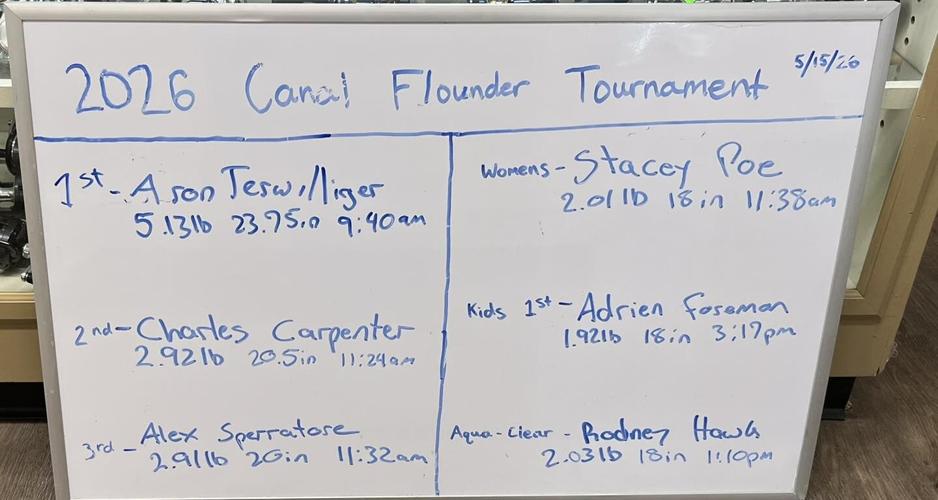 2026 Canal Flounder Tournament
5/15/26
1st - Aron Terwilliger
5.13lb 23.75in 9:40am
2nd - Charles Carpenter
2.92lb 20.5in 11:24am
3rd - Alex Sperratore
2.91lb 20in 11:32am
Womens - Stacey Poe
2.01lb 18in 11:38am
Kids 1st - Adrien Foreman
1.92lb 18in 3:17pm
Aqua-Clear - Rodney Hawk
2.03lb 18in 1:10pm